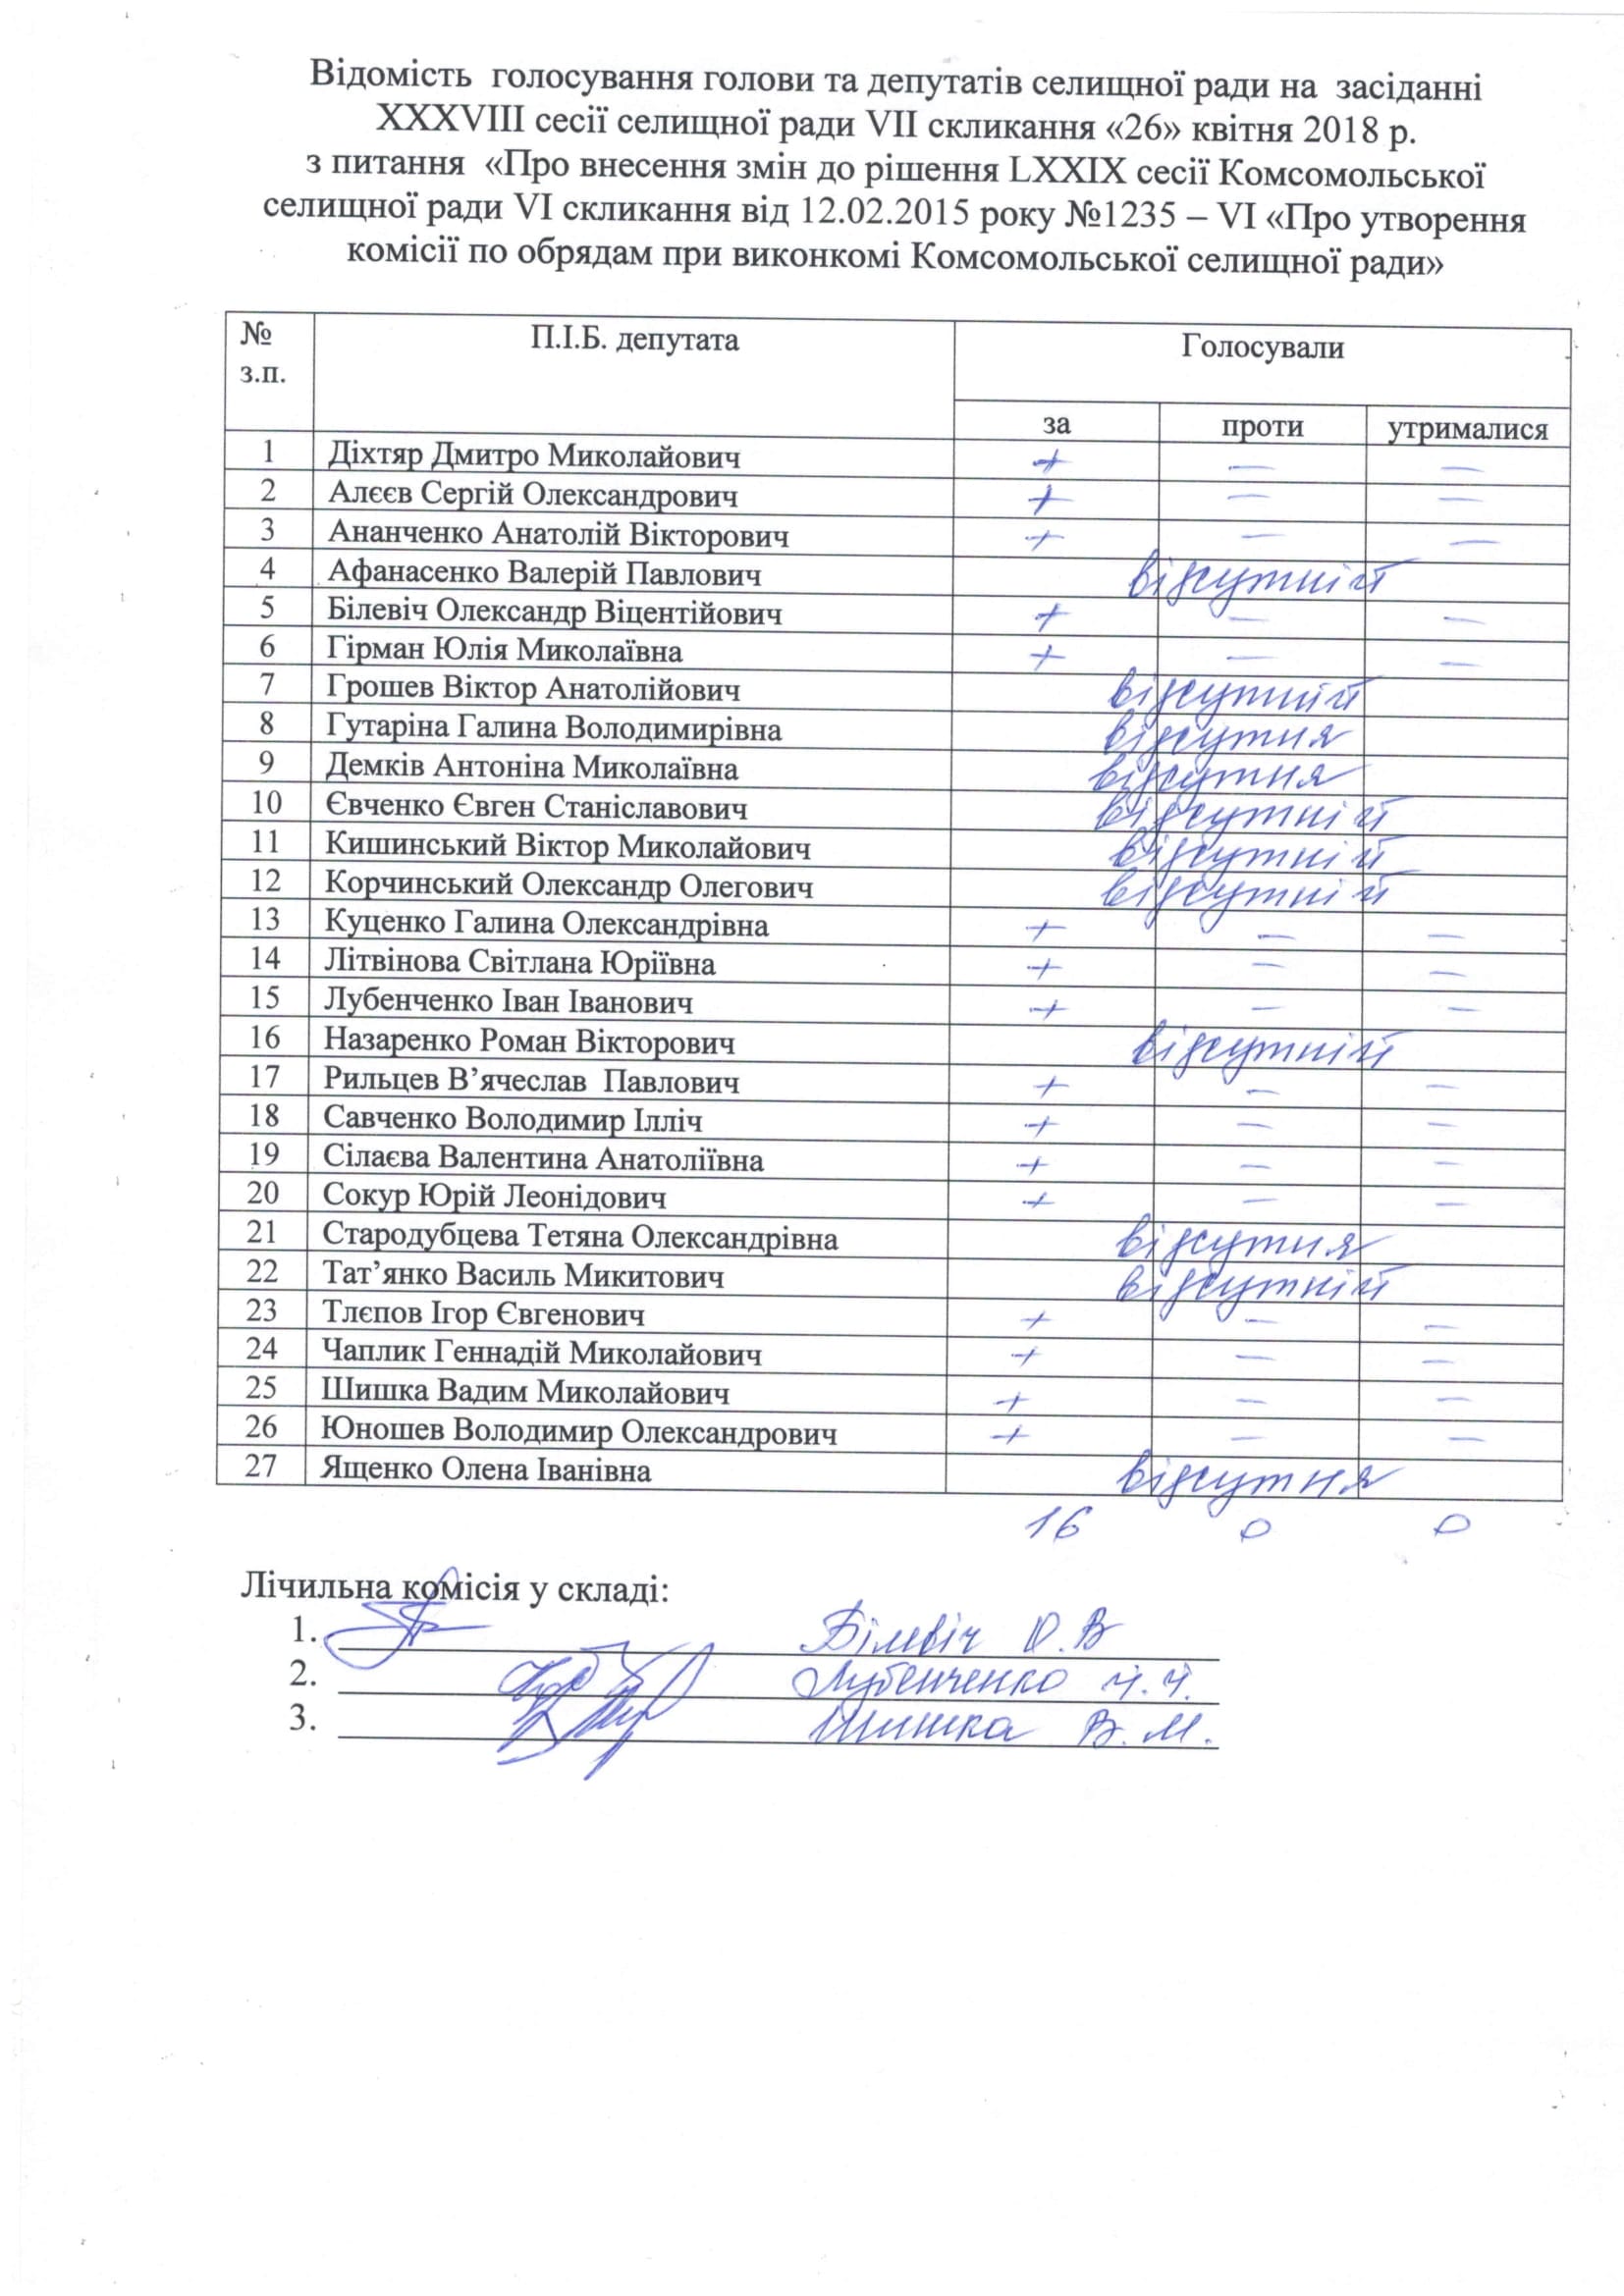 Відомість голосування голови та депутатів селищної ради на засіданні
XXXVIII сесії селищної ради VII скликання «26» квітня 2018 р.
з питання «Про внесення змін до рішення LXXIX сесії Комсомольської
селищної ради VI скликання від 12.02.2015 року №1235 – VI «Про утворення
комісії по обрядам при виконкомі Комсомольської селищної ради»
№ з.п. П.І.Б. депутата Голосували
за проти утрималися
1 Діхтяр Дмитро Миколайович + — —
2 Алєєв Сергій Олександрович + — —
3 Ананченко Анатолій Вікторович + — —
4 Афанасенко Валерій Павлович відсутній
5 Білевіч Олександр Віцентійович + — —
6 Гірман Юлія Миколаївна + — —
7 Грошев Віктор Анатолійович відсутній
8 Гутаріна Галина Володимирівна відсутня
9 Демків Антоніна Миколаївна відсутня
10 Євченко Євген Станіславович відсутній
11 Кишинський Віктор Миколайович відсутній
12 Корчинський Олександр Олегович відсутній
13 Куценко Галина Олександрівна + — —
14 Літвінова Світлана Юріївна + — —
15 Лубенченко Іван Іванович + — —
16 Назаренко Роман Вікторович відсутній
17 Рильцев В’ячеслав Павлович + — —
18 Савченко Володимир Ілліч + — —
19 Сілаєва Валентина Анатоліївна + — —
20 Сокур Юрій Леонідович + — —
21 Стародубцева Тетяна Олександрівна відсутня
22 Тат’янко Василь Микитович відсутній
23 Тлєпов Ігор Євгенович + — —
24 Чаплик Геннадій Миколайович + — —
25 Шишка Вадим Миколайович + — —
26 Юношев Володимир Олександрович + — —
27 Ященко Олена Іванівна відсутня
16 0 0
Лічильна комісія у складі:
1. Білевіч О.В
2. Лубенченко І.І.
3. Шишка В.М.